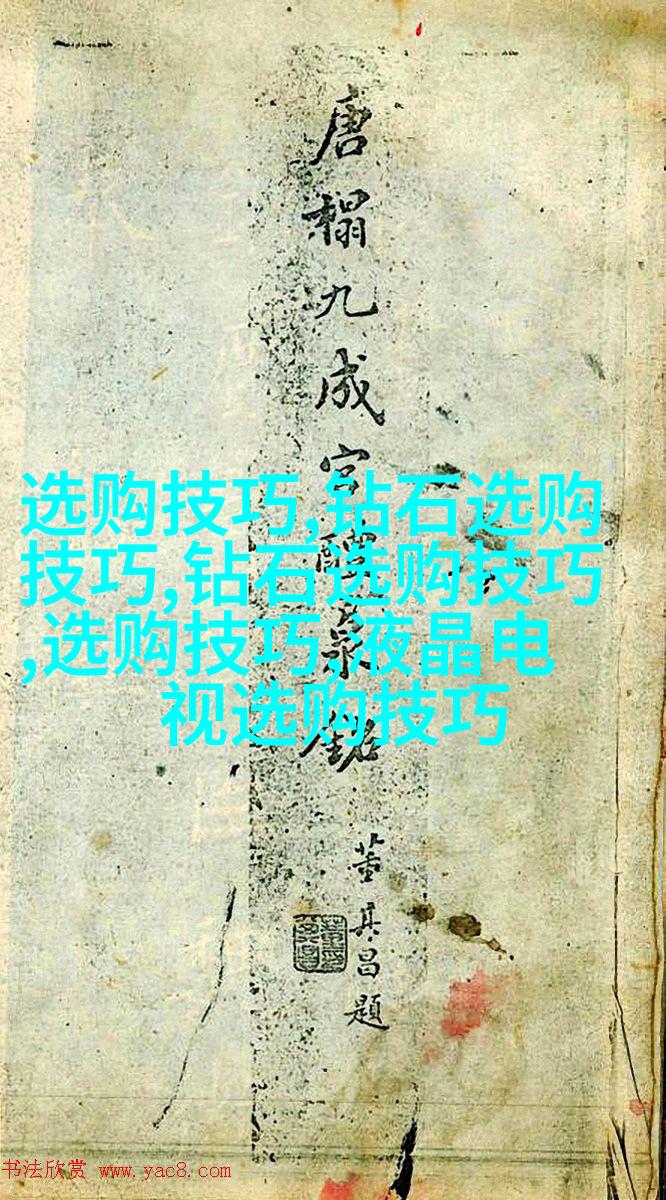 唐榻九成宫醴泉銘
董其昌題
选购技巧,钻石选购
技巧,钻石选购技巧
,选购技巧,液晶电
视选购技巧
书法欣赏 www.yac8.com